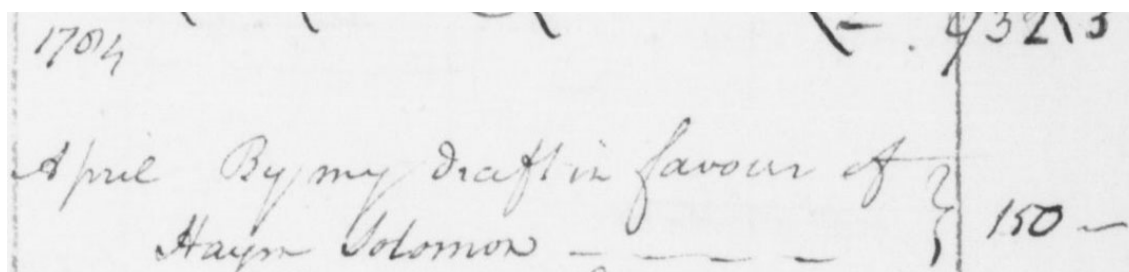 1784
April By my draft in favour of
Haym Solomon - - - - 150 -